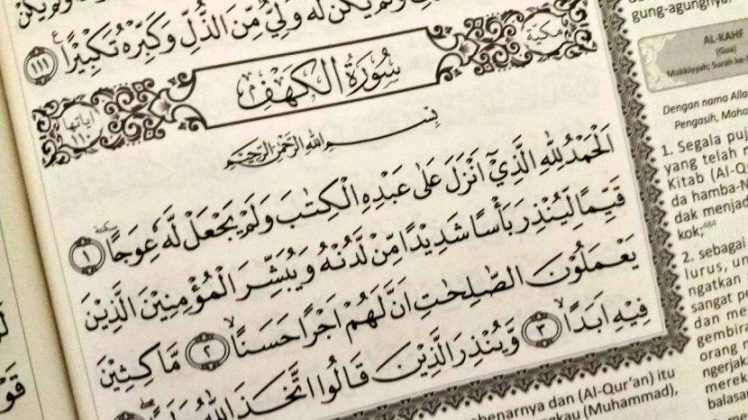 وَلَمْ يَكُنْ لَّهٗ وَلِيٌّ مِّنَ الذُّلِّ وَكَبِّرْهُ تَكْبِيْرًا ١١١
مكية
سُوْرَةُ الْكَهْفِ
اياتها ١١٠
بِسْمِ اللّٰهِ الرَّحْمٰنِ الرَّحِيْمِ
اَلْحَمْدُ لِلّٰهِ الَّذِيْٓ اَنْزَلَ عَلٰى عَبْدِهِ الْكِتٰبَ وَلَمْ يَجْعَلْ لَّهٗ عِوَجًا ١
قَيِّمًا لِّيُنْذِرَ بَأْسًا شَدِيْدًا مِّنْ لَّدُنْهُ وَيُبَشِّرَ الْمُؤْمِنِيْنَ الَّذِيْنَ
يَعْمَلُوْنَ الصّٰلِحٰتِ اَنَّ لَهُمْ اَجْرًا حَسَنًا ٢ مَّاكِثِيْنَ
فِيْهِ اَبَدًا ٣ وَّيُنْذِرَ الَّذِيْنَ قَالُوا اتَّخَذَ اللّٰهُ
gung-agungnya
AL-KAHF
(Gua)
Makkiyyah; Surah ke-
Dengan nama Alla
Pengasih, Maha
1. Segala puj
yang telah m
Kitab (Al-Qu
da hamba-N
dak menjad
kok,
2. sebagai
lurus, un
ngatkan
sangat p
dan me
gembir
orang
ngerjak
merek
balasa
benarnya dan (Al-Qur'an) itu
(Muhammad),